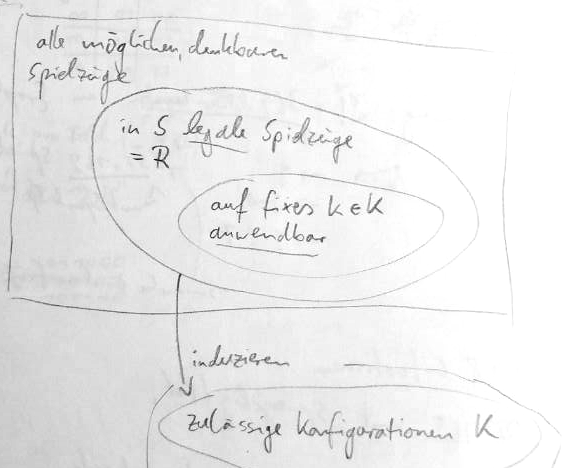 alle möglichen, denkbaren
Spielzüge
in S legale Spielzüge
= R
auf fixes K ∈ K
anwendbar
induzieren
zulässige Konfigurationen K